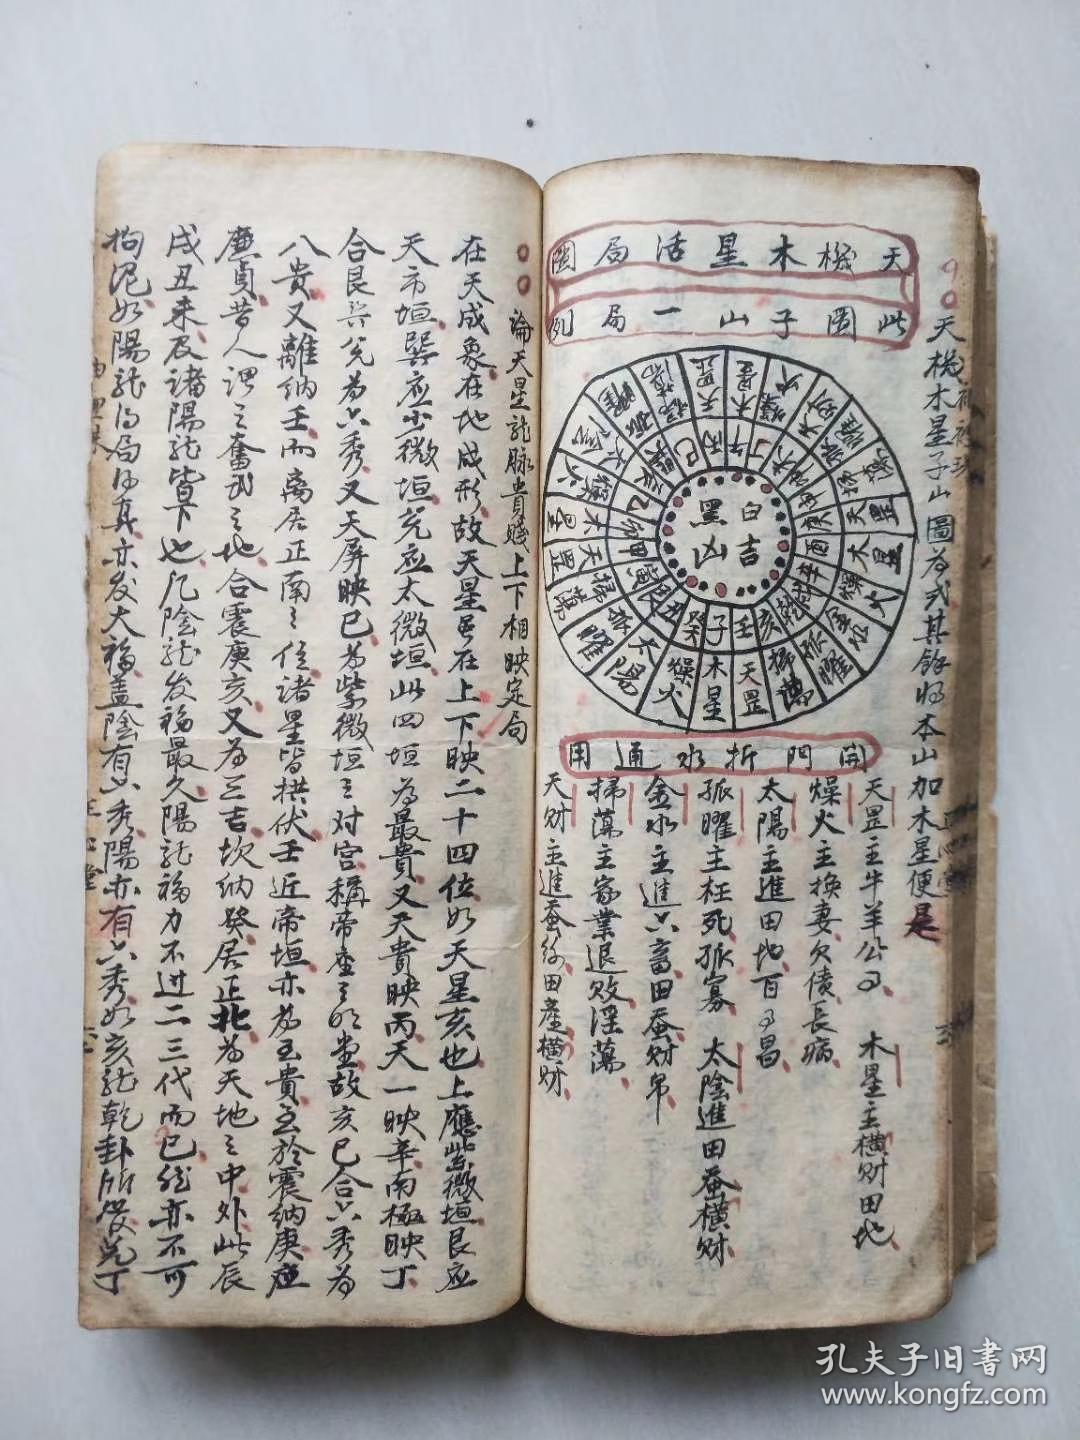 天機木星子山圖為式其餘將本山加木星便是
天機木星活局圖
此圖子山一局例
白吉
黑凶
子
壬
亥
癸
木星
天罡
掃蕩
孤曜
燥火
太陽
開門折水通用
天罡主牛羊公事
木星主橫財田地
燥火主換妻欠債長病
太陽主進田地百事昌
孤曜主枉死孤寡
太陰進田蚕橫財
金水主進六畜田蚕財帛
掃蕩主家業退敗淫蕩
天財主進蚕絲田產橫財
論天星龍脉貴賤上下相映定局
在天成象在地成形故天星虽在上下映二十四位如天星亥也上應紫微垣艮应
天市垣巽应少微垣兑应太微垣此四垣為最貴又天貴映丙天一映辛南極映丁
合艮巽兑為六秀又天屏映巳為紫微垣之对宮稱帝座之明堂故亥巳合六秀為
八貴又離納壬而离居正南之位诸星皆拱伏壬近帝垣亦為至貴至於震納庚应
廉貞昔人谓之奮武之地合震庚亥又為三吉坎納癸居正北為天地之中外此辰
戌丑未及諸陽龍皆下也凡陰龍发福最久陽龍福力不过二三代而已然亦不可
拘泥如陽龍得局得真亦发大福盖陰有六秀陽亦有六秀如亥龍乾卦所发兑丁
孔夫子旧书网
www.kongfz.com